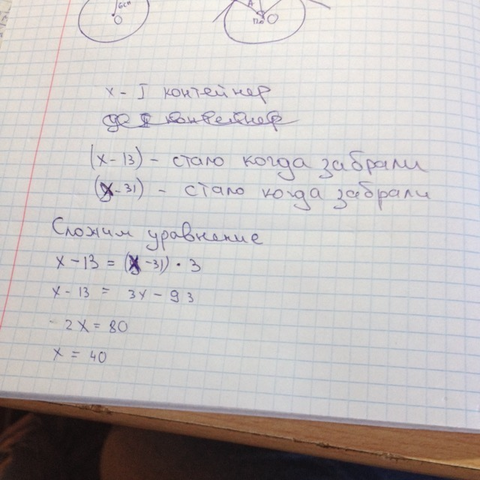 O O
x - I контейнер
(x - 13) - стало когда забрали
(x - 31) - стало когда забрали
Сложим уравнение
x - 13 = (x - 31) · 3
x - 13 = 3x - 93
- 2x = 80
x = 40